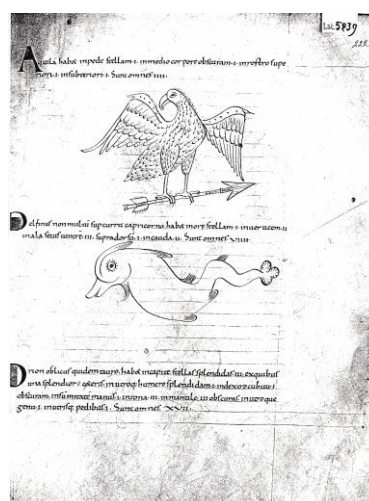 Lat. 5939
Aquila habæ inpede stellam ·I· inmedio corpore obscuram ·I· inrostro supe
riori ·I· insubteriori ·I· Sunt omnes IIII·
Delfinus non multū sup currit capricorno, habæ in ore stellam ·I· in uerticem ·II·
in ala secus uentrē ·III· supra dorsū ·I· incauda ·II· Sunt omnes VIIII
Orion oblicus quidem tauro, habæ incapite stellas splendidas ·III· ex quibus
una splendior; ceteris in utroq; humero splendidam ·I· in dextro cubitu ·I·
obscuram, in summitate manus ·I· inzona ·III· in manubrio ·III· obscuras in utroque
genu ·I· in utrisq; pedibus ·I· Sunt omnes XVII·